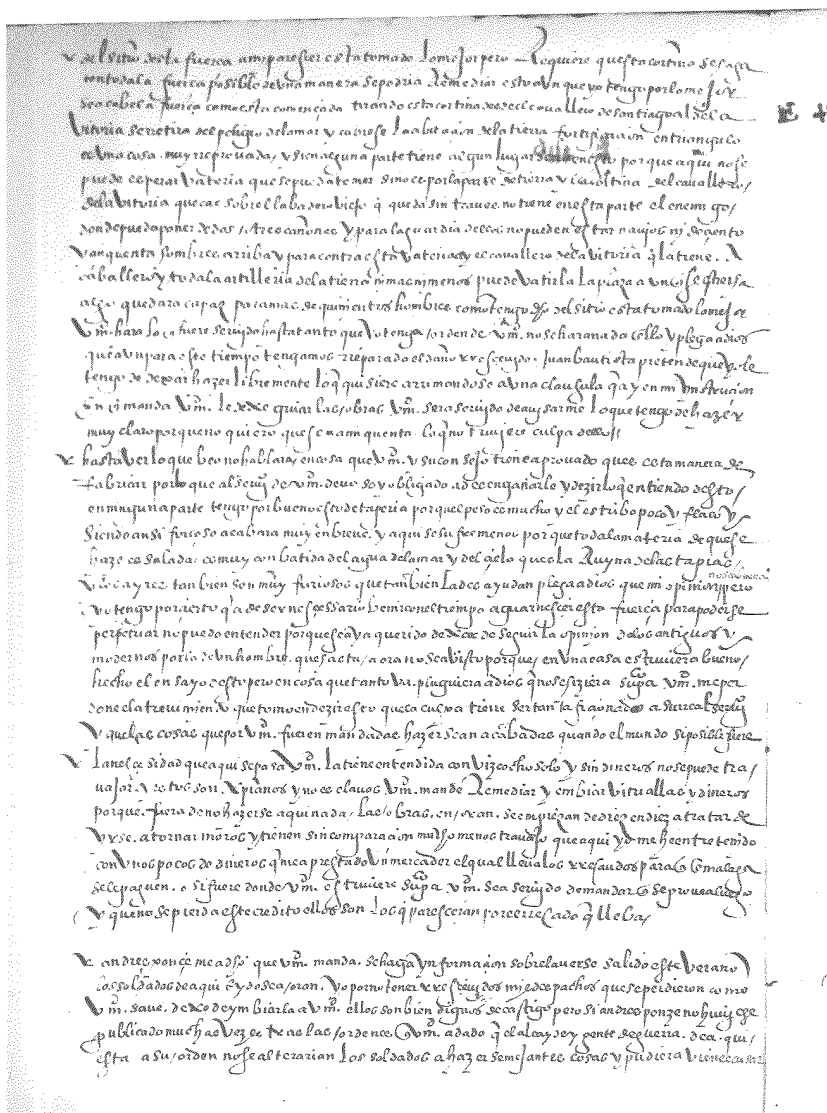 del sitio de la fuerça a mi pareszer esta tomado lo mejor pero Requiere questa cortina se haga
con toda la fuerça posible de una manera se podria Remediar esto aunque yo tengo por lo mejor
se acabe la fuerça como esta començada tirando esta cortina desde el cavallero de santiago al de la
vitoria se retira del peligro de la mar y cubrese la abitaçion de la tierra fortificaçion en triangulo
es una cosa muy reprovada y si en alguna parte tiene algun lugar es en esto porque aqui no se
puede esperar vateria que se pueda temer sino es por la parte de tierra y la cortina del cavallero
de la vitoria que cae sobre el labadero viejo q queda sin traves no tiene en esta parte el enemigo
donde pueda poner dos o tres cañones y para la guardia dellos no pueden estar navios ni de çiento
y cinquenta hombres arriba y para contra esta vateria es el cavallero de la vitoria q la tiene
cavallero y toda la artilleria de la tierra ni mas ni menos puede vatir la plaza
algo quedara capaz para mas de quinientos hombres como tengo dho del sitio esta tomado lo mejor
Vm. hara lo q fuere seruido hasta tanto que yo tenga orden de Vm. no se hara nada en ello y plega a dios
que aun para este tiempo tengamos rreparado el daño rresceuido. Juan bautista pretende que yo le
tengo de dexar hazer libremente lo q quisiere arrimandose a una clausula q ay en mi ynstruçion
en q manda Vm. le dexe guiar las obras Vm. sera seruido de auisarme lo que tengo de hazer
muy claro porque no quiero que se a mi quenta lo q no truxere culpa dello
hasta ver lo que beo no hablara en cosa que Vm. y su consejo tiene aprovado ques esta manera de
fabricar por lo que al serui° de Vm. devo soy obligado a desengañarle y dezir lo q entiendo desto
en ninguna parte tengo por bueno esto de taperia porquel peso es mucho y el estribo poco y flaco y
siendo ansi forçoso acabara muy en breve y aqui se sufre menos porque toda la materia de que se
haze es salada, es muy conbatida del agua de la mar y del çielo ques la Ruyna de las tapias
y los ayres tambien son muy furiosos que tambien les ayudan plega a dios que mi opinion no salga buena pero
yo tengo por çierto q a de ser nesçessario bemir con el tiempo a guarnesçer esta fuerça para poderse
perpetuar no puedo entender porque se aya querido dexar de seguir la opinion de los antiguos y
modernos por la de un hombre
hecho el ensayo desto pero en cosa que tanto va pluguiera a dios q no se hiziera supco a Vm. me per
done el atrevimien° que tomo en dezir esto
y que las cosas que por Vm. fueren mandadas hazer sean acabadas quando el mundo si posible fuere
la nesçesidad que aqui se pasa Vm. la tiene entendida con vizcocho solo y sin dineros no se puede tra
vajar y estos son xpianos y no esclavos Vm. mande Remediar y embiar vituallas y dineros
porque fuera de no hazerse aqui nada las obras en oran se empiezan de diez en diez a tratar de
yrse a tornar moros y tienen sin comparaçion mucho menos travajo que aqui yo me he entretenido
con unos pocos de dineros q me a prestado un mercader el qual lleva los rrecaudos para q en malaga
se le paguen. o si fuere donde Vm. estuviere supco a Vm. sea seruido de mandarlo se prouea luego
y que no se pierda este credito ellos son los q paresceran por el rrecado q lleba
andres ponçe me a dho que Vm. manda se haga ynformaçion sobre averse salido este verano
los soldados de aqui ydose a oran. yo por no tener rresceuidos mis despachos que se perdieron como
Vm. save. dexo de ymbiarla a Vm. ellos son bien dignos de castigo pero si andres ponze no huuiese
publicado muchas vezes tras las ordenes q Vm. a dado q el alcayde y gente de guerra de aqui
esta a su orden no se alterarian los soldados a hazer semejantes cosas y pudiera